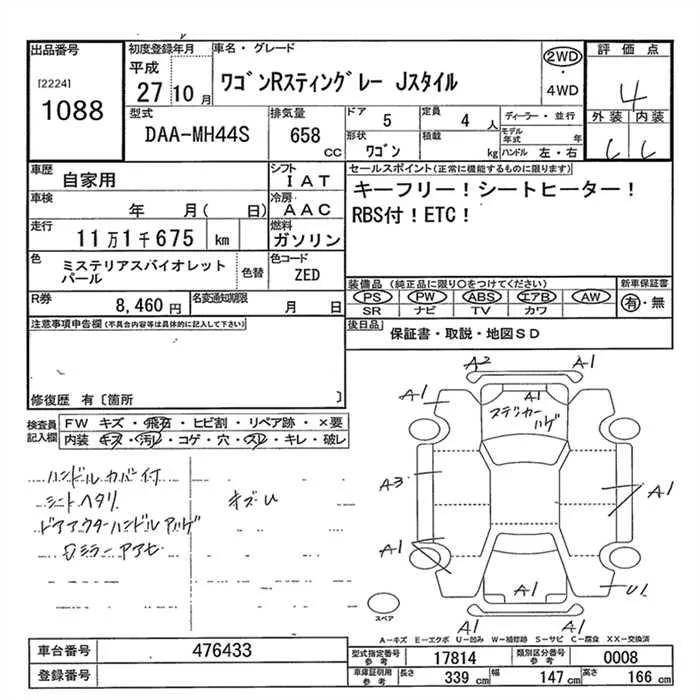 出品番号
[2224]
1088
初度登録年月
平成
27 10月
車名・グレード
ワゴンRスティングレー Jスタイル
2WD
・
4WD
評価点
4
外装 内装
型式
DAA-MH44S
排気量
658
CC
ドア
5
定員
4 人
形状
ワゴン
積載
kg
ディーラー・並行
モデル年式 年
ハンドル 左・右
車歴
自家用
シフト
IAT
車検
年 月( 日)
冷房
AAC
走行
11万1千675 km
燃料
ガソリン
色
ミステリアスバイオレット
パール
色替
色コード
ZED
R券
8,460円
名変通知期限
月 日
セールスポイント(正常に機能するものに限ります)
キーフリー!シートヒーター!
RBS付!ETC!
装備品 (純正品に限り○をつけてください)
PS PW ABS エアB AW
SR ナビ TV カワ
新車保証書
有・無
後日品
保証書・取説・地図SD
注意事項申告欄(不具合内容等は具体的に記入して下さい)
修復歴 有〔箇所 〕
検査員
記入欄
FW キズ・飛石・ヒビ割・リペア跡・×要
内装 キズ・汚レ・コゲ・穴・スレ・キレ・破レ
ハンドルカバー付
シートヘタリ
ドアアウターハンドル
ミラー
A2 A1
A1
A1
ステッカー
ハゲ
A3
A1
A1
A1
U1
A1 A1
スペア
A-キズ E-エクボ U-凹み W-補修跡 S-サビ C-腐食 XX-交換済
車台番号
476433
登録番号
型式指定番号
参考
17814
類別区分番号
参考
0008
車庫証明
参考
長さ 339 cm 幅 147 cm 高さ 166 cm